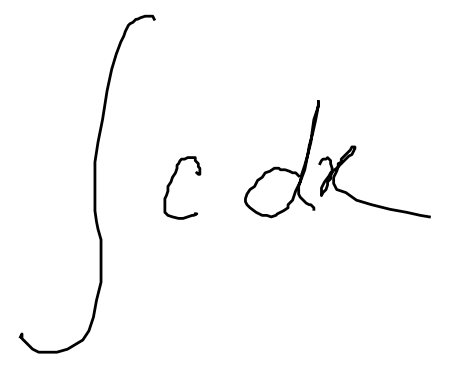 ∫ c dx